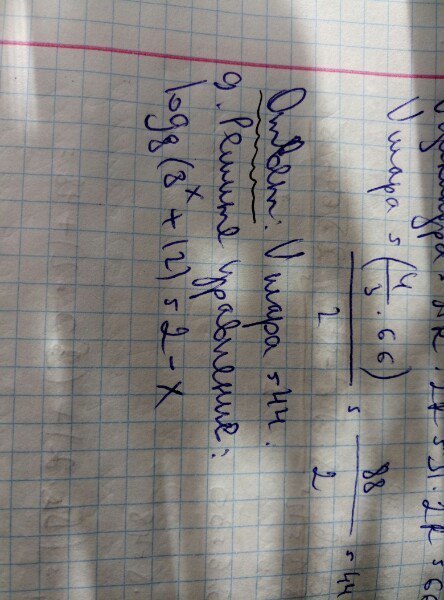 V шара = (4/3 · 66) / 2 = 88 / 2 = 44
Ответ: V шара = 44.
9. Решите уравнение:
log₈(8ˣ + 12) = 2 - x